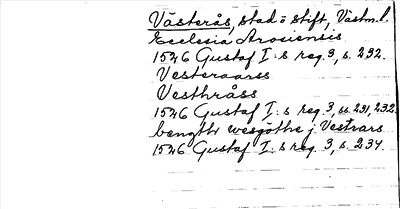 Västerås, stad o stift, Västm. l.
Ecclesia Arosiensis
1526 Gustaf I:s reg. 3, s. 232.
Vesteraarss
Vesthråss
1526 Gustaf I:s reg. 3, ss. 231, 232
bengtt wesgöthe j Vestrars
1526 Gustaf I:s reg. 3, s. 234.